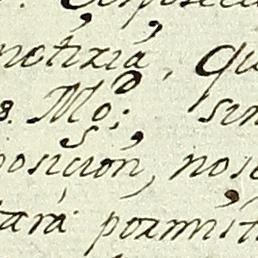 notizia, qu
s. Mo^d; sin
posicion, nos
tará permit